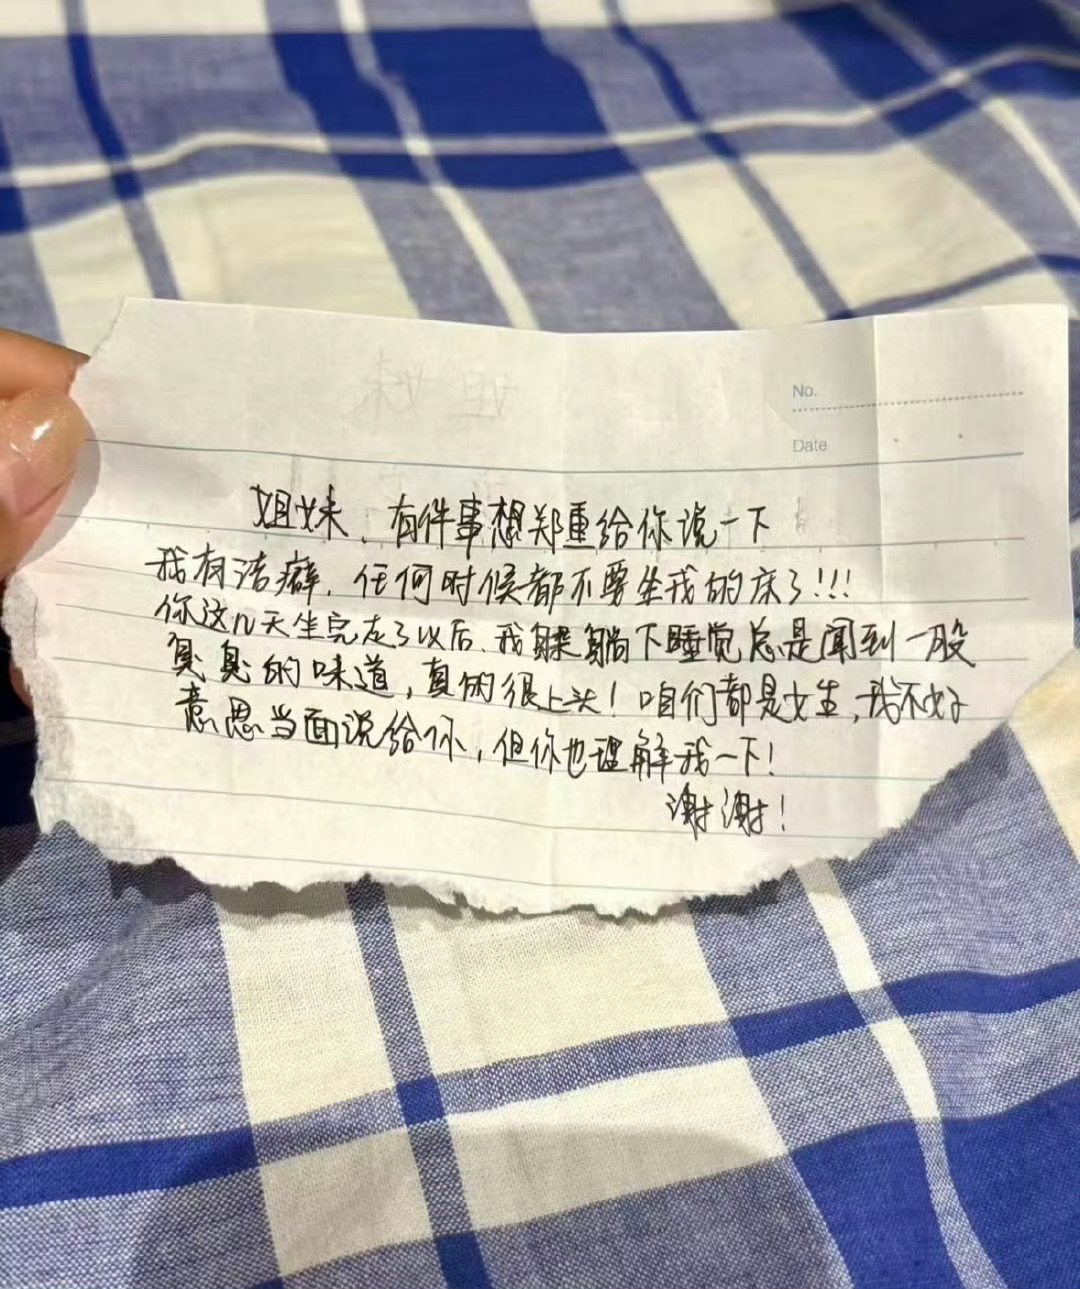 No.
Date
姐妹、有件事想郑重给你说一下
我有洁癖,任何时候都不要坐我的床了!!!
你这几天坐完左了以后、我躺下睡觉总是闻到一股
臭臭的味道,真的很上头!咱们都是女生,我不好
意思当面说给你,但你也理解我一下!
谢谢!